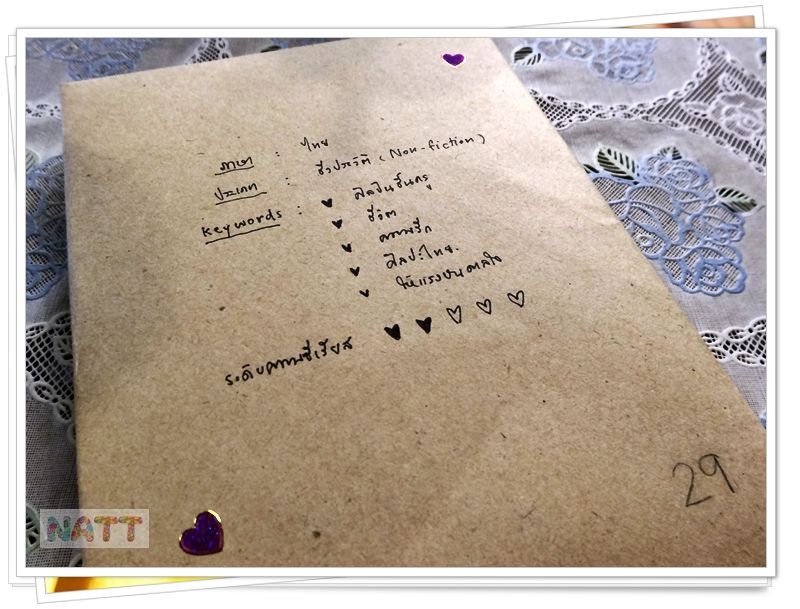 ภาษา : ไทย
ประเภท : ชีวประวัติ (Non-fiction)
keywords : ♥ ศิลปินชั้นครู
♥ ชีวิต
♥ ความรัก
♥ ศิลปะไทย.
♥ ให้แรงบันดาลใจ
ระดับความซีเรียส ♥ ♥ ♡ ♡ ♡
29
NATT